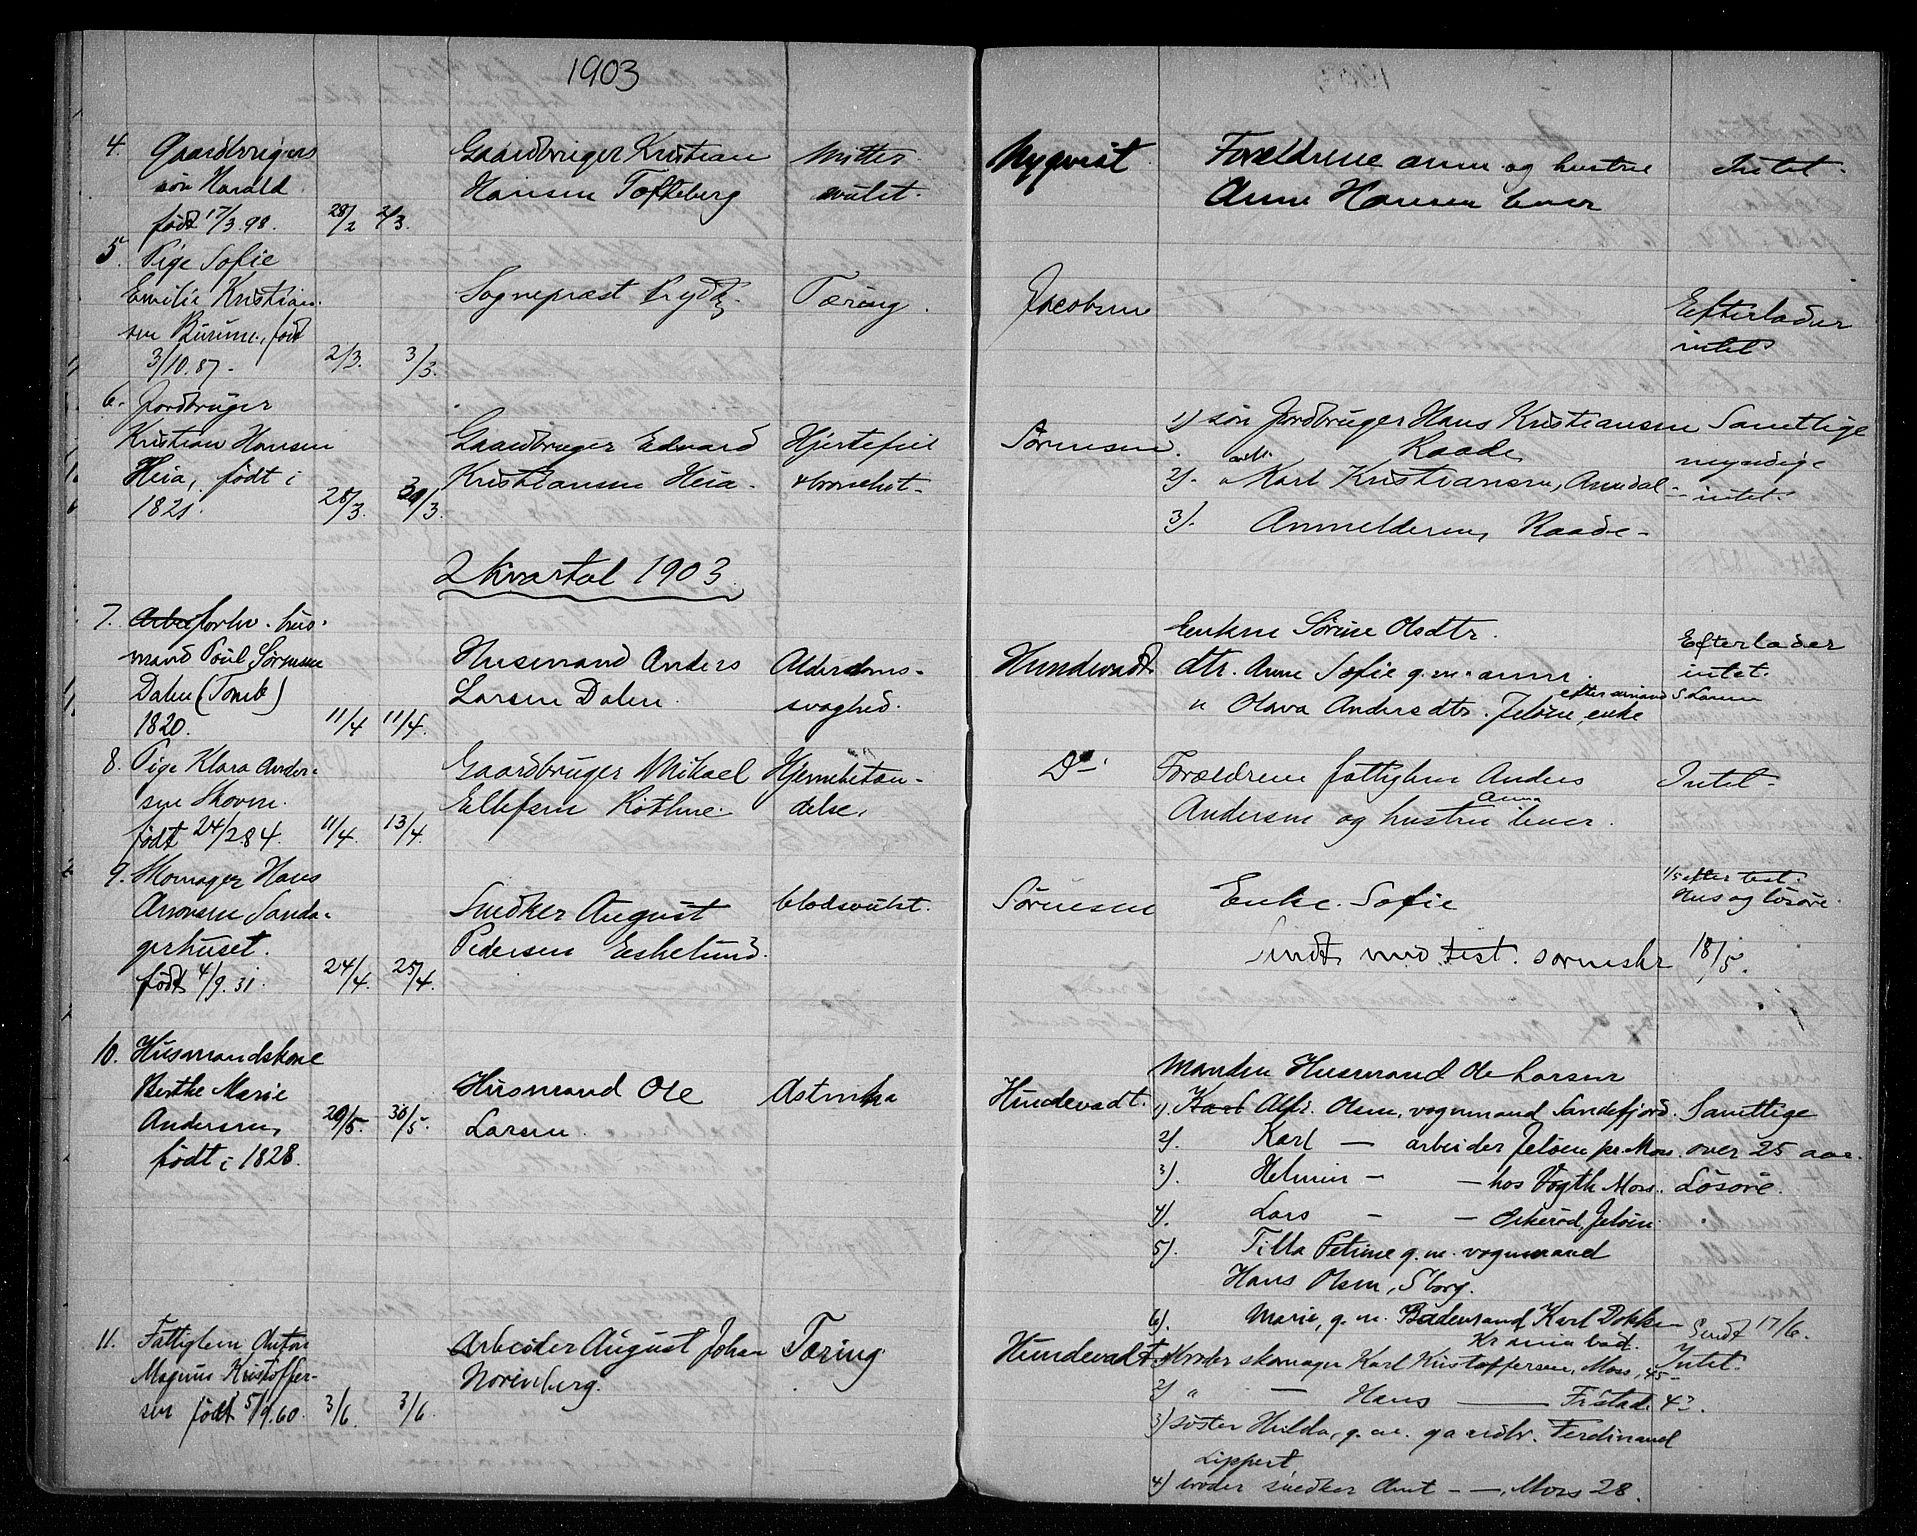 1903
4. Gaardbrugers
søn Harald
født 17/3.98. 28/2 2/3.
Gaardbruger Kristian
Hansen Tofteberg
svulst.
Nyqvist
Forældrene anm og hustru
Anne Hansen lever
Intet.
5. Pige Sofie
Emilie Kristian-
sen Burum, født
3/10.87. 2/3. 3/3.
Sogneprest
Tæring.
Jacobsen
Efterlader
intet
6. Jordbruger
Kristian Hansen
Heia, født i
1821. 28/3. 30/3.
Gaardbruger Edvard
Kristiansen Heia.
Hjertefeil
+ bronchit.
Sørensen.
1) søn Jordbruger Hans Kristiansen
Raade
2). " arb. Karl Kristiansen,
3). Anmelderen, Raade.
Samtlige
myndige
intet.
2 Kvartal 1903.
7. Arbei forhv. hus-
mand Poul Sørensen
Dalen (Tomb)
1820. 11/4 11/4.
Husmand Anders
Larsen Dalen.
Alderdoms-
svaghed.
Hundevadt.
Enken Sørine Olsdtr.
dtr. Anne Sofie g.m. anm.
" Olava Andersdtr. Jeløen, enke
efter
S. Larsen
Efterlader
intet.
8. Pige Klara Ander-
sen Skoven.
født 24/2 84. 11/4. 13/4.
Gaardbruger Mikael
Ellefsen Kothne.
Hjernebetæn-
delse.
Do.
Forældrene fattiglem Anders
Andersen og hustru Anna lever.
Intet.
9. Skomager Hans
Andersen Sanda-
gerhuset.
født 4/9.31. 24/4. 25/4.
Snedker August
Pedersen Eskelund.
blodsvulst.
Sørensen
Enke. Sofie
Sendt med test. sorenskr 18/5.
1/5 efter test.
Hus og løsøre.
10. Husmandskone
Berthe Marie
Andersen,
født i 1828. 29/5. 30/5.
Husmand Ole
Larsen.
Astmha
Hundevadt.
Manden Husmand Ole Larsen
1) Karl Alfr. Olsen, vognmand Sandefjord.
2). Karl — arbeider Jeløen pr. Moss.
3). Helmin — — hos Vogth Moss.
4). Lars — — Orkerød, Jeløen.
5). Tilla Petrine g.m. vognmand
Hans Olsen, S'borg.
6). Marie, g.m. Bademand Karl Dokken
Kr.ania bad.
Samtlige
over 25 aar.
Løsøre.
Sendt 17/6.
11. Fattiglem Anton
Magnus Kristoffer-
sen født 5/9.60. 3/6. 3/6.
Arbeider August Johan
Norenberg.
Tæring
Hundevadt
1) broder skomager Karl Kristoffersen, Moss, 45.
2) " — Hans — Fr.stad. 43.
3) søster Hulda, g.m. gaardbr. Ferdinand
Lippert
4) broder snedker Arnt — —, Moss 28.
Intet.